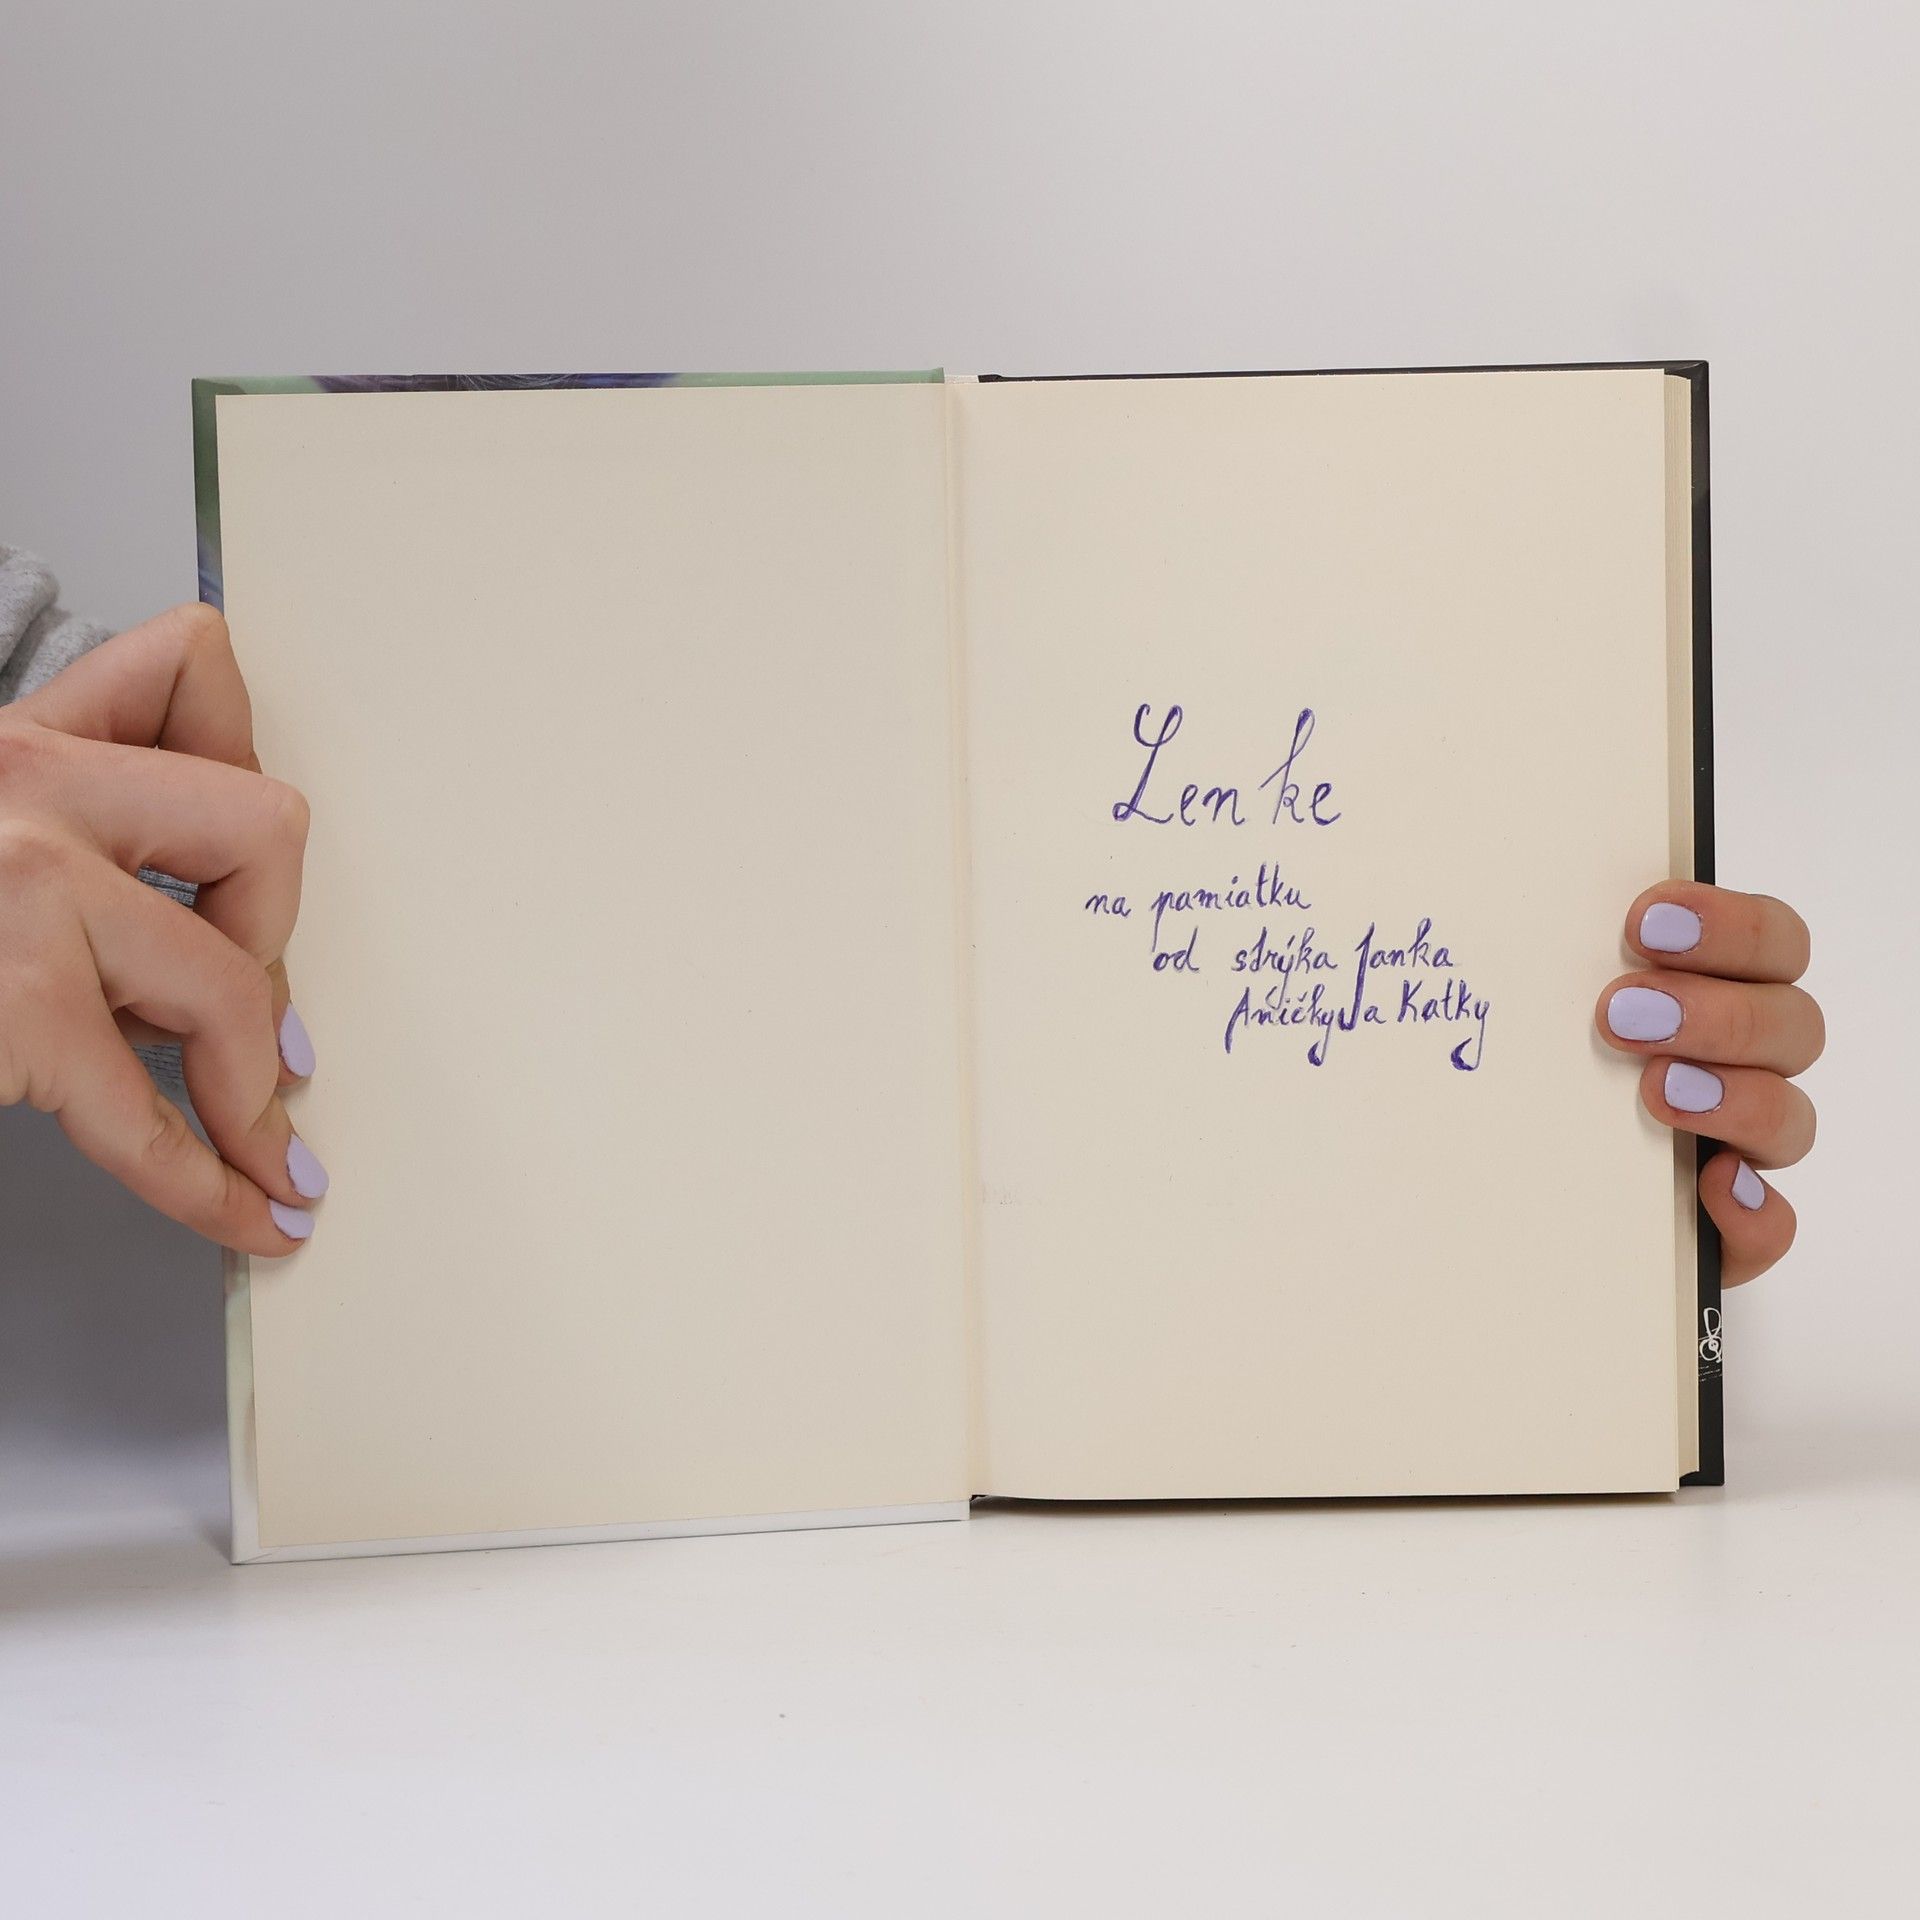 Lenke
na pamiatku
od strýka Janka
Aničky a Katky